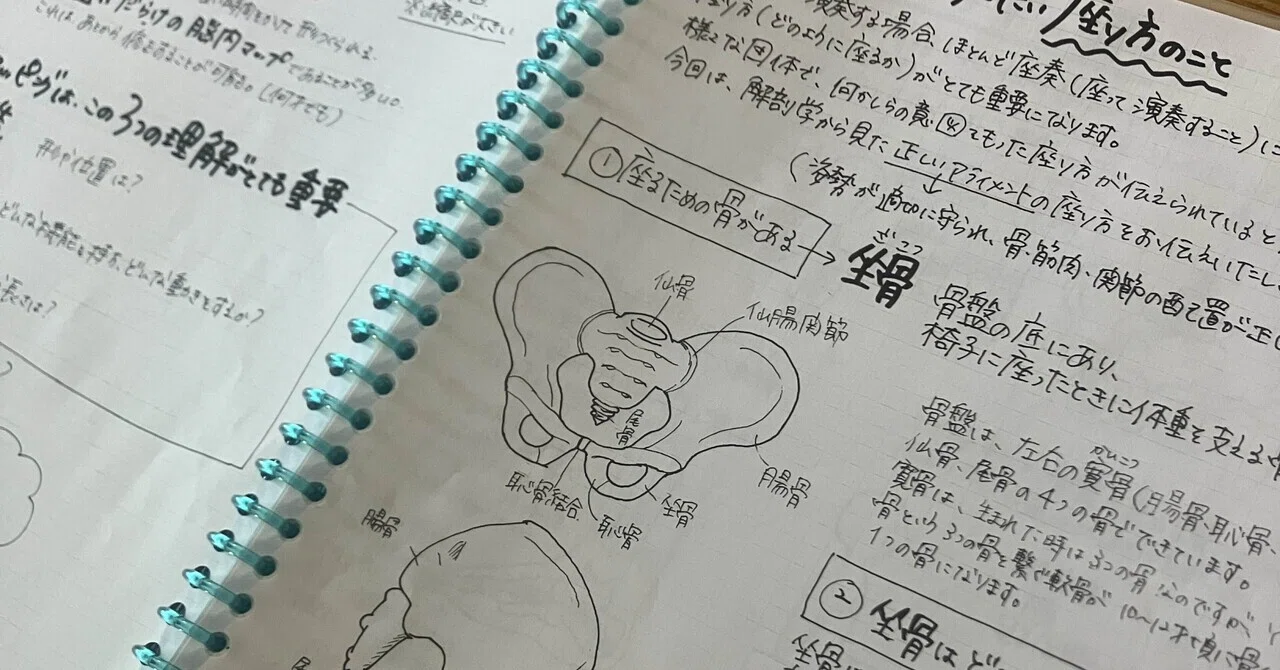 だらけの脳内マップであることが多い。
これは、あとから修正することが可能。(何才でも)
ピングは、この3つの理解がとても重要
形や位置は?
どんな機能を持ち、どんな動きをするか?
長さは?
座り方のこと
演奏する場合、ほとんど座奏(座って演奏すること)に
座り方(どのように座るか)がとても重要になります。
様々な団体で、何かしらの意図をもった座り方が伝えられていると
今回は、解剖学から見た正しいアライメントの座り方をお伝えいたし
(姿勢が適切に守られ、骨・筋肉、関節の配置が正し
①座るための骨がある
ざこつ
坐骨
骨盤の底にあり、
椅子に座ったときに体重を支える骨
仙骨
仙腸関節
尾骨
恥骨結合
恥骨
坐骨
腸骨
腸骨
骨盤は、左右の寛骨(腸骨、恥骨、
かんこつ
仙骨、尾骨の4つの骨でできています。
寛骨は、生まれた時は3つの骨なのですが、
骨という3つの骨を繋ぐ軟骨が10〜12才頃に骨
1つの骨になります。
②坐骨はど
坐骨